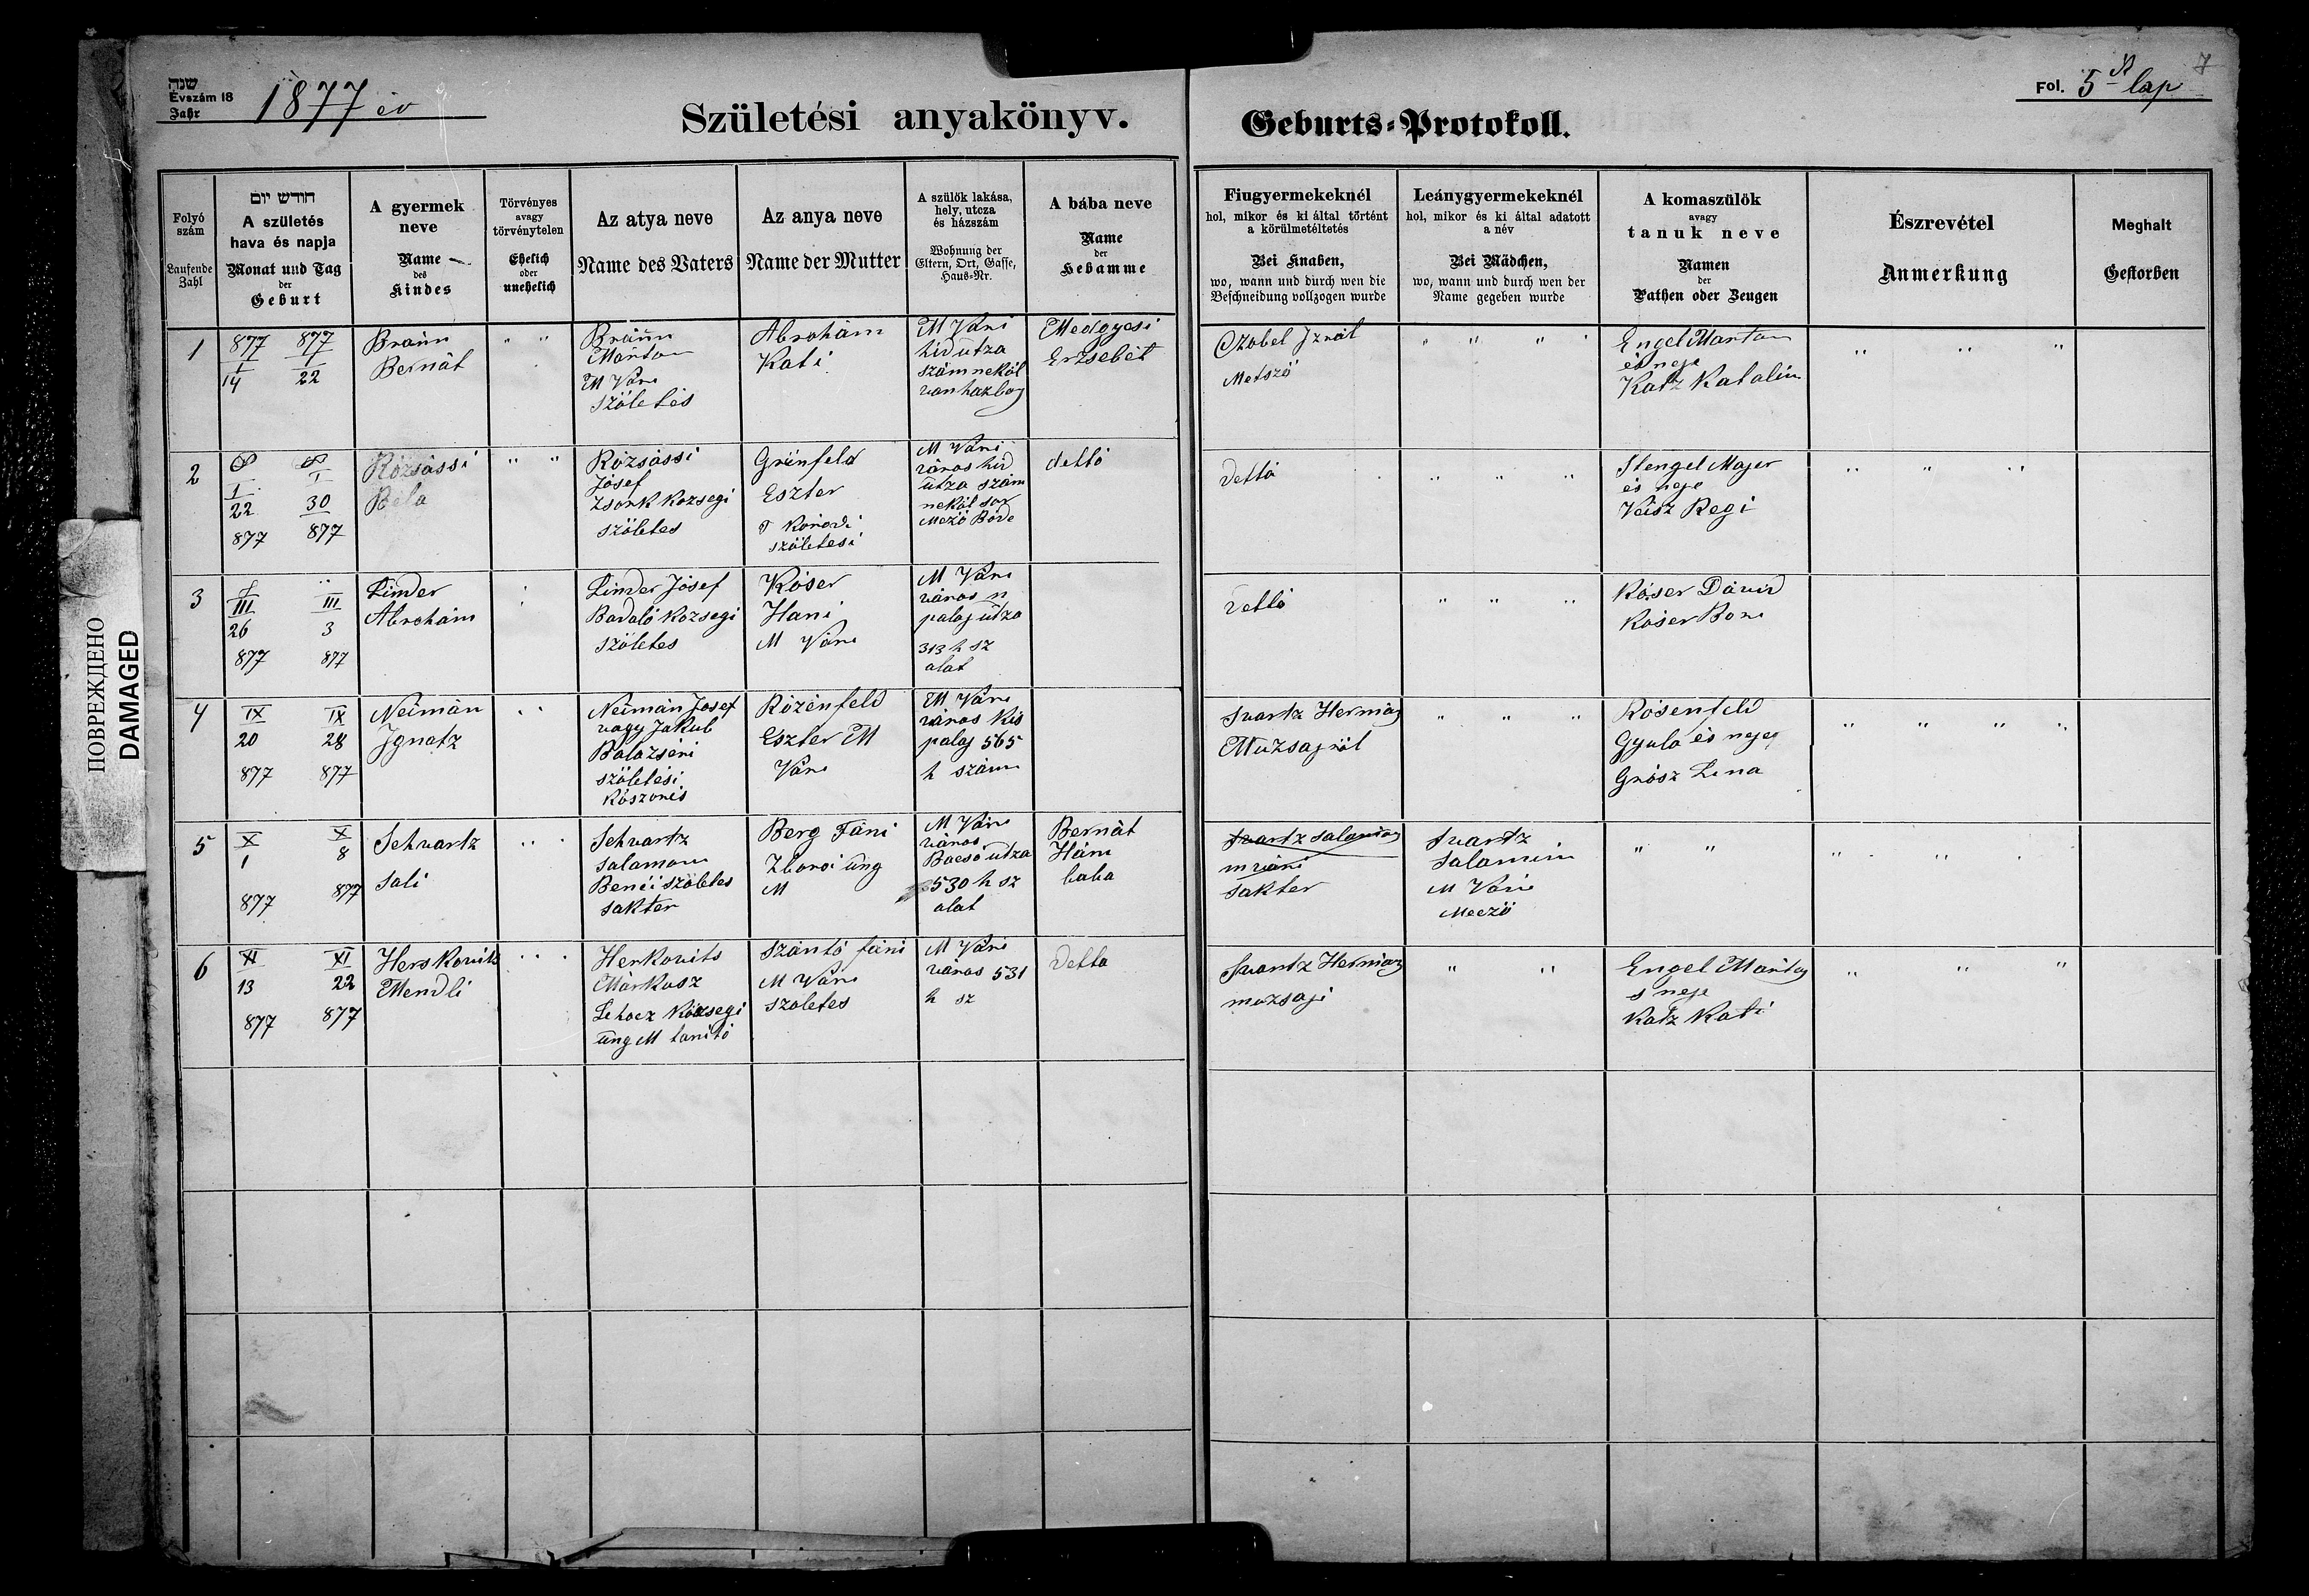 שנה
Évszám 18
Jahr
1877 év
Születési anyakönyv.
Geburts-Protokoll.
Fol. 5 lap
7
ПОВРЕЖДЕНО
DAMAGED
Folyó
szám
Laufende
Zahl
חודש יום
A születés
hava és napja
Monat und Tag
der
Geburt
A gyermek
neve
Name
des
Kindes
Törvényes
avagy
törvénytelen
Ehelich
oder
unehelich
Az atya neve
Name des Vaters
Az anya neve
Name der Mutter
A szülők lakása,
hely, utcza
és házszám
Wohnung der
Eltern, Ort, Gasse,
Haus-Nr.
A bába neve
Name
der
Hebamme
Fiugyermekeknél
hol, mikor és ki által történt
a körülmetéltetés
Bei Knaben,
wo, wann und durch wen die
Beschneidung vollzogen wurde
Leánygyermekeknél
hol, mikor és ki által adatott
a név
Bei Mädchen,
wo, wann und durch wen der
Name gegeben wurde
A komaszülők
avagy
tanuk neve
Namen
der
Pathen oder Zeugen
Észrevétel
Anmerkung
Meghalt
Gestorben
1
877 877
I I
14 22
Braün
Bernát
" "
Braün
Marton
M Vári
szöletés
Abrohám
Kati
M Vári
hid utza
szám neköl
van hazboz
Medgyesi
Erzsebét
Czobel Izrál
Metszö
" " " "
Engel Marton
és neje
Katz Katalin
" " "
2
I I
22 30
877 877
Rózsássi
Béla
" "
Rózsássi
Jósef
Zsonk kozsegi
szöletes
Grünfeld
Eszter
szöletesi
M Vári
város hid
utza szám
neköl sor
Mezö
dettó
dettó
" " "
Stengel Majer
és neje
Veisz Regi
" " "
3
III III
26 3
877 877
Linder
Abrohám
Linder Jósef
Badaló kozsegi
szöletes
Kóser
Hani
M Vári
M Vári
város n
palaj utza
313 h sz
alat
dettó
" " "
Kóser Dávid
Kóser Boni
4
IX IX
20 28
877 877
Neimán
Ignatz
" "
Neimán Josef
vagy Jakub
Balazséri
szöletési
Rózénfeld
Eszter M
Vári
M Vári
város kis
palaj 565
h szám
Svartz Hermán
Muzsajról
" " "
Rosenfeld
Gyula és neje
Grósz Lina
" " " "
5
X X
1 8
877 877
Schvartz
Sali
" "
Schvartz
Salamon
Benéi szöletes
sakter
Berg Fáni
Zboroi üng
M
M Vári
város
Bacsó utza
530 h sz
alat
Bernát
Háni
baba
Svartz Salamon
m vári
sakter
Svartz
Salamin
M Vári
Meczö
" "
" " "
6
XI XI
13 22
877 877
Herskovits
Mendli
" "
Herkovits
Márkusz
Lehocz közsegi
üng M tanitó
Szántó fáni
M Vári
szoletes
M Vári
város 531
h sz
detta
Svartz Hermán
muzsaji
" "
Engel Marton
s neje
Katz Kati
" " "